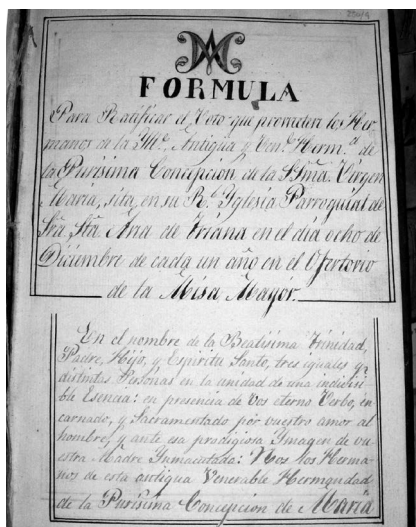 FORMULA
Para Ratificar el Voto que proceden los Her
manos de la Ille. Antigua y Ven. Hermd. de
la Purísima Concepcion de la Sma. Virgen
María, sita, en su Rl. Yglesia Parroquial de
Sra. Sta. Ana de Triana en el dia ocho de
Diciembre de cada un año en el Ofertorio
de la Misa Mayor.
En el nombre de la Beatísima Trinidad,
Padre, Hijo, y Espíritu Santo, tres iguales y
distintas Personas en la unidad de una indivisi
ble Esencia: en presencia de Vos eterno Verbo, en
carnado, y Sacramentado por vuestro amor al
hombre, y ante esa prodigiosa Ymagen de vu
estra Madre Ynmaculada: Nos los Herma
nos de esta antigua Venerable Hermandad
de la Purísima Concepcion de María